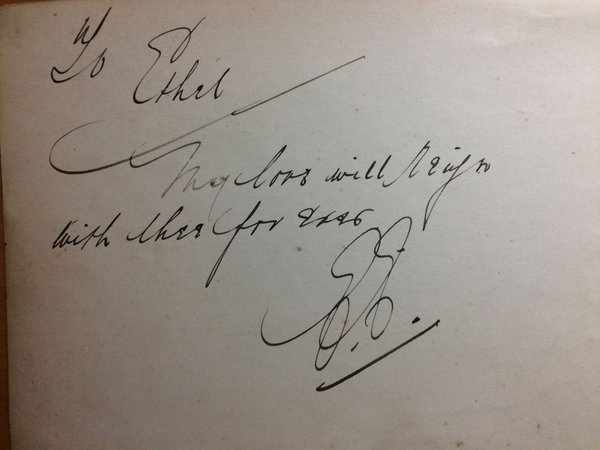 To Ethel
My love will reign
with thee for ever